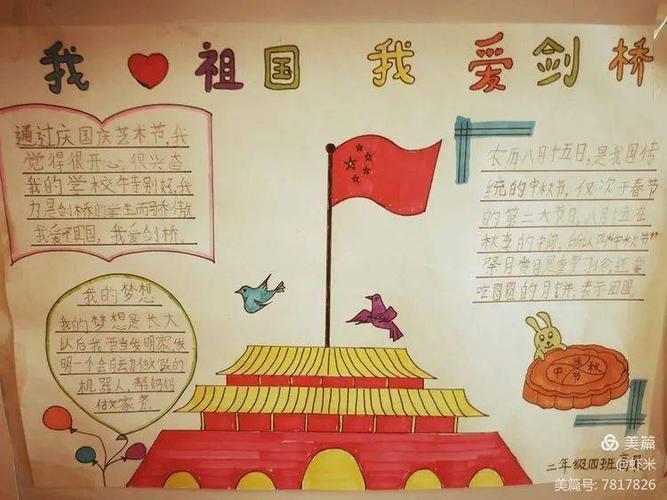 我❤祖国 我爱剑桥
通过庆国庆艺术节,我
觉得很开心,很兴奋
我的学校特别好,我
为是剑桥的学生而骄傲
我爱祖国,我爱剑桥.
农历八月十五日,是我国传
统的中秋节,仅次于春节
的第二大节日,八月十五在
秋季的中间,所以叫"中秋节"
祭月赏月是重要习俗,还要
吃圆圆的月饼,表示团圆
我的梦想
我的梦想是长大
以后我要当发明家,发
明一个会自动做饭的
机器人,帮妈妈
做家务.
中秋
节
二年级四班
美篇
@虾米
美篇号: 7817826